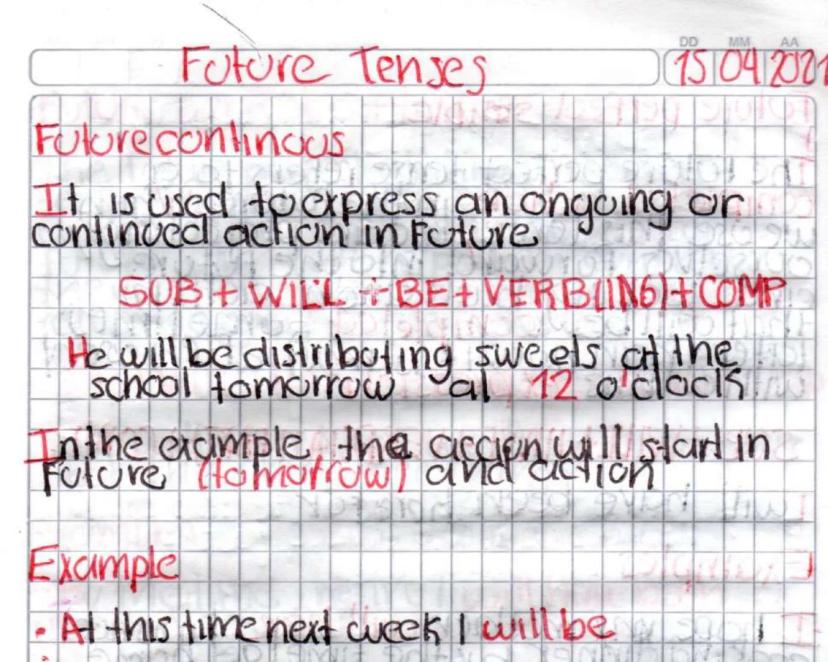 DD MM AA
Future Tenses 15 04 2021
Future continous
It is used to express an ongoing or
continued action in Future
SUB + WILL + BE + VERB(ING) + COMP
He will be distributing sweets at the
school tomorrow at 12 o'clock
In the example, the action will start in
Future (tomorrow) and action
Example
• At this time next week I will be